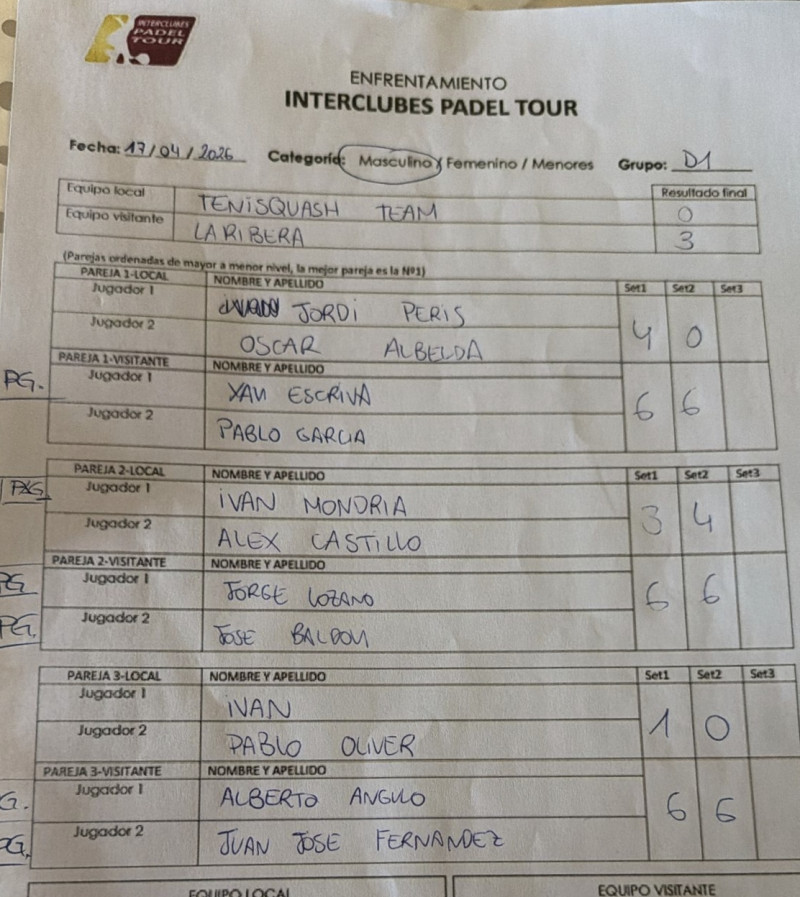 INTERCLUBES
PADEL
TOUR
ENFRENTAMIENTO
INTERCLUBES PADEL TOUR
Fecha: 17/04/2026 Categoría: Masculino / Femenino / Menores Grupo: D1
Equipo local TENISQUASH TEAM Resultado final 0
Equipo visitante LA RIBERA 3
(Parejas ordenadas de mayor a menor nivel, la mejor pareja es la Nº1)
PAREJA 1-LOCAL NOMBRE Y APELLIDO Set1 Set2 Set3
Jugador 1 JORDI PERIS
Jugador 2 OSCAR ALBELDA 4 0
PAREJA 1-VISITANTE NOMBRE Y APELLIDO
PG. Jugador 1 XAVI ESCRIVA 6 6
Jugador 2 PABLO GARCIA
PAREJA 2-LOCAL NOMBRE Y APELLIDO Set1 Set2 Set3
Jugador 1 IVAN MONDRIA 3 4
Jugador 2 ALEX CASTILLO
PAREJA 2-VISITANTE NOMBRE Y APELLIDO
PG Jugador 1 JORGE LOZANO 6 6
PG. Jugador 2 JOSE
PAREJA 3-LOCAL NOMBRE Y APELLIDO Set1 Set2 Set3
Jugador 1 IVAN 1 0
Jugador 2 PABLO OLIVER
PAREJA 3-VISITANTE NOMBRE Y APELLIDO
G. Jugador 1 ALBERTO ANGULO 6 6
PG. Jugador 2 JUAN JOSE FERNANDEZ
EQUIPO LOCAL EQUIPO VISITANTE